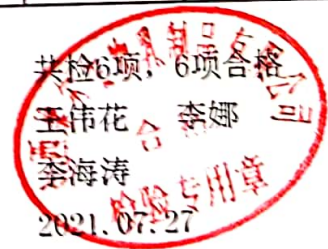 共检6项，6项合格
王伟花 李娜
李海涛
2021.07.27
乳制品有限公司
合
检验专用章